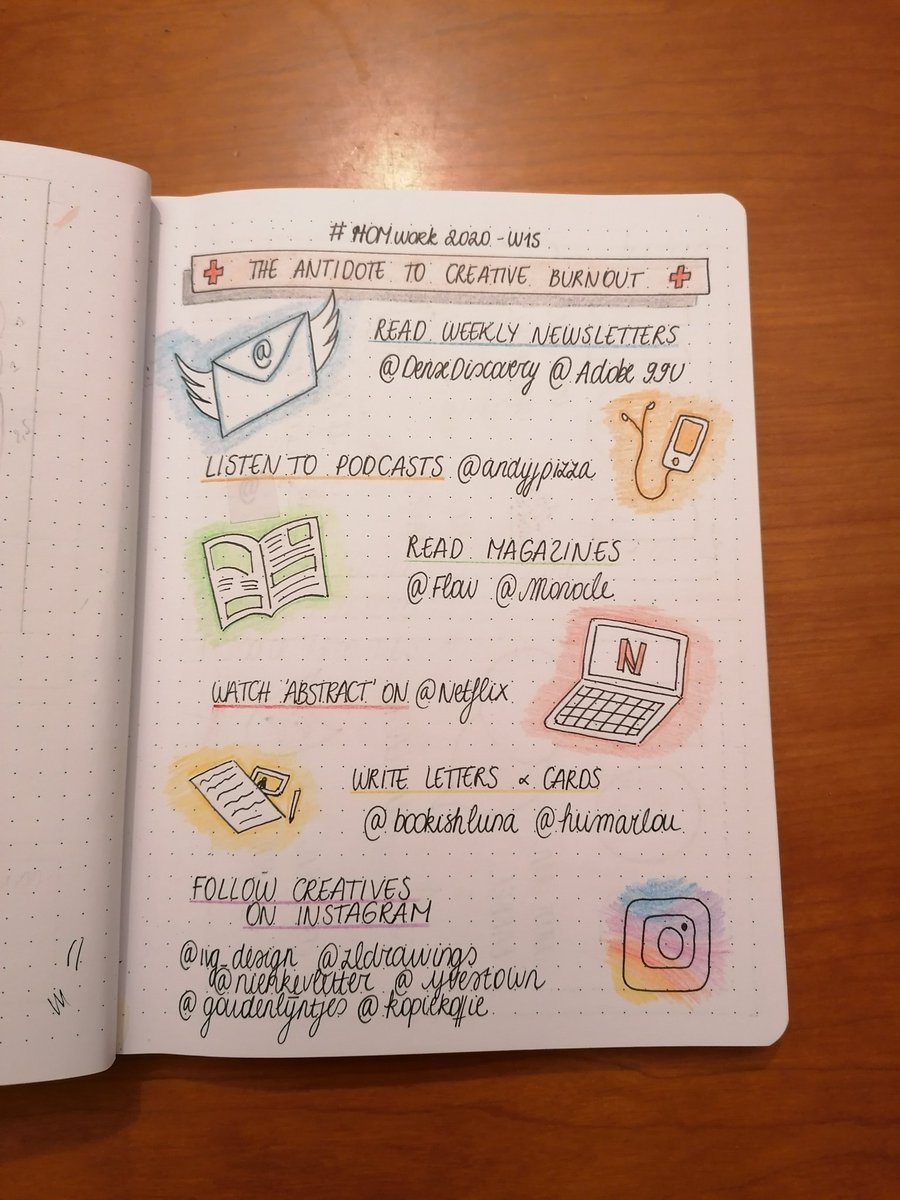 # HOMwork 2020 - W15
THE ANTIDOTE TO CREATIVE BURNOUT
@
READ WEEKLY NEWSLETTERS
@DenseDiscovery @Adobe 99U
LISTEN TO PODCASTS @andyjpizza
READ MAGAZINES
@Flow @Monocle
N
WATCH 'ABSTRACT' ON @Netflix
WRITE LETTERS & CARDS
@bookishluna @humarlou
FOLLOW CREATIVES
ON INSTAGRAM
@zldrawings
@yvestown
@goudenlijntjes @kopiekoffie